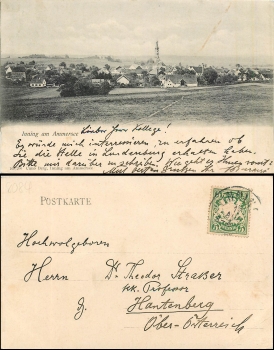 Inning am Ammersee
Lieber Herr Kollege!
Es würde mich interessieren, zu erfahren ob
Sie die Stelle in Lundenburg erhalten haben.
Bitte mir darüber zu schreiben. Wie geht es Ihnen sonst?
Mit besten Grüßen Ihr
POSTKARTE
Hochwolgeboren
Herrn Dr Theodor Straßer
kk. Professor
Hantenberg
Ober-Österreich